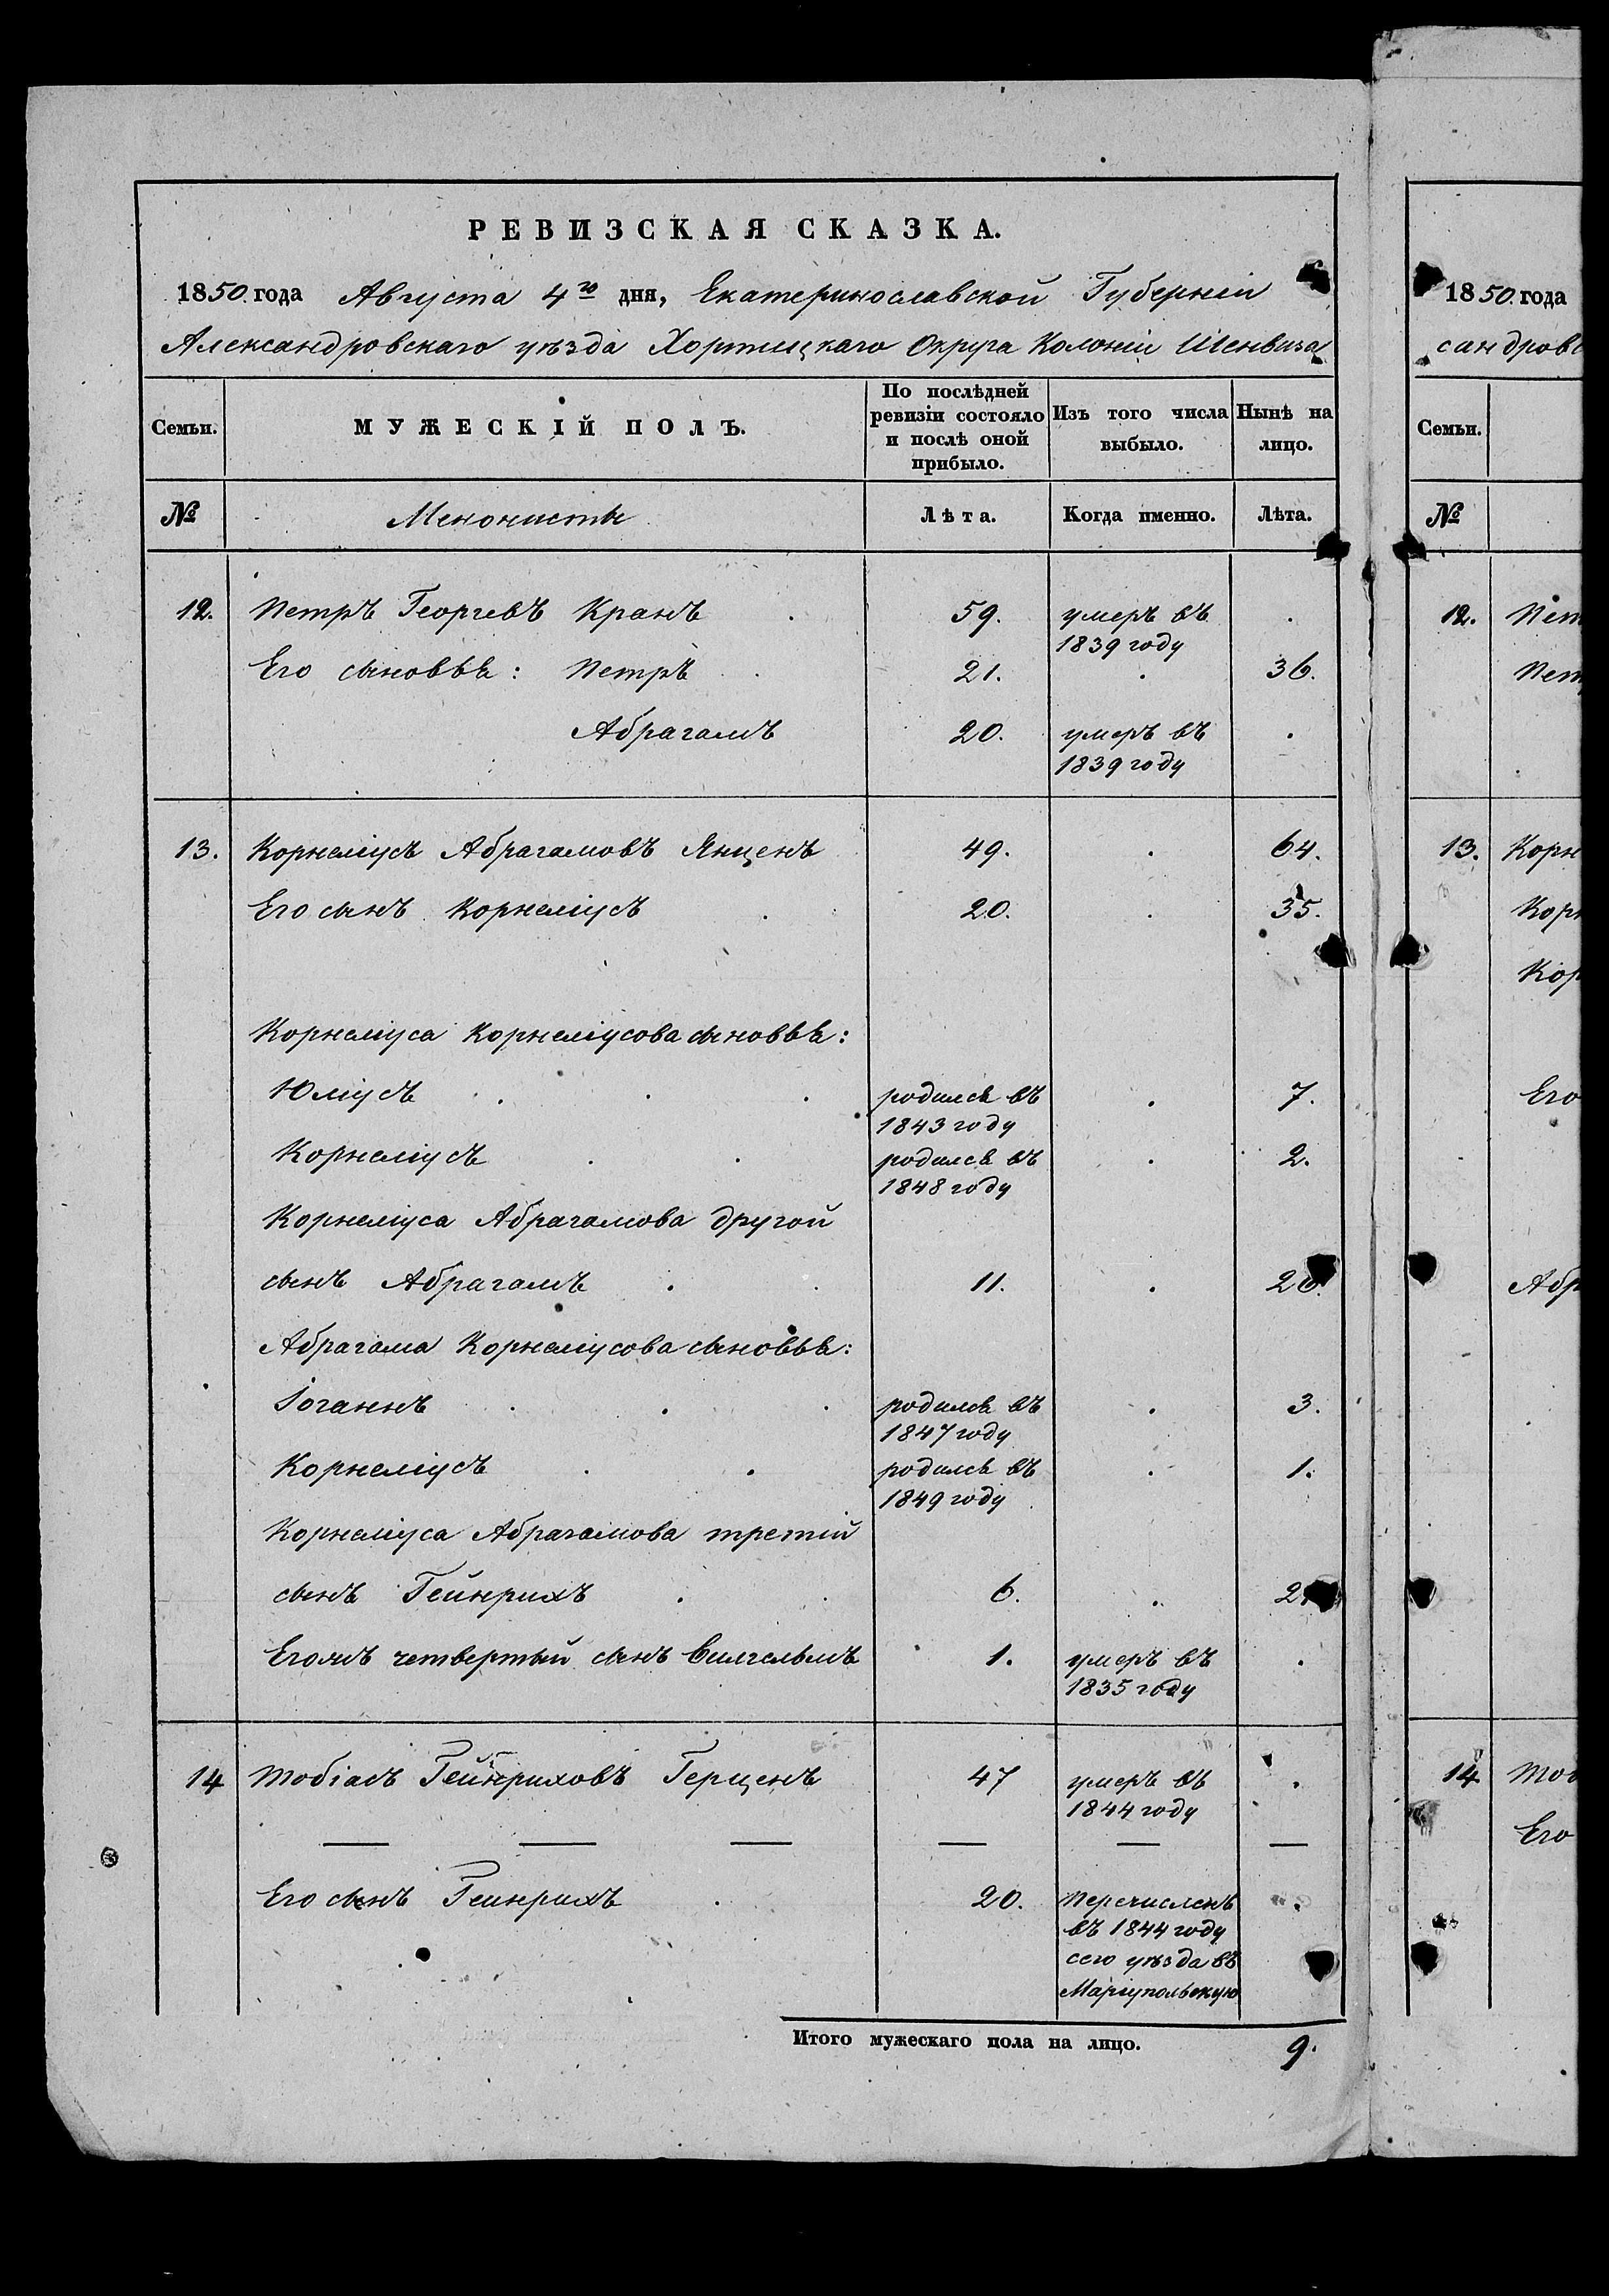 РЕВИЗСКАЯ СКАЗКА.
1850 года Августа 4го дня, Екатеринославской Губерніи
Александровскаго уѣзда Хортицкаго Округа Колоніи Шенвиза
Семьи.
МУЖЕСКІЙ ПОЛЪ.
По послѣдней ревизіи состояло и послѣ оной прибыло.
Изъ того числа выбыло.
Нынѣ на лицо.
№ Менонисты Лѣта. Когда именно. Лѣта.
12. Петръ Георгевъ Кранъ 59. умеръ въ
1839 году
Его сыновья: Петръ 21. 36.
Абрагамъ 20. умеръ въ
1839 году
13. Корнеліусъ Абрагамовъ Янценъ 49. 64.
Его сынъ Корнеліусъ 20. 35.
Корнеліуса Корнеліусова сыновья:
Юліусъ родился въ 7.
1843 году
Корнеліусъ родился въ 2.
1848 году
Корнеліуса Абрагамова другой
сынъ Абрагамъ 11. 26.
Абрагама Корнеліусова сыновья:
Іоганнъ родился въ 3.
1847 году
Корнеліусъ родился въ 1.
1849 году
Корнеліуса Абрагамова третій
сынъ Гейнрихъ 6. 2
Егожъ четвертый сынъ Вилгельмъ 1. умеръ въ
1835 году
14 Тобіасъ Гейнриховъ Герценъ 47 умеръ въ
1844 году
Его сынъ Геинрихъ 20. перечисленъ
въ 1844 году
сего уѣзда въ
Маріупольскую
Итого мужескаго пола на лицо. 9.
1850 года
сандровс
Семьи.
№
12. Пет
Пет
13. Корн
Корн
Кор
Его
Абр
14 Тоб
Его